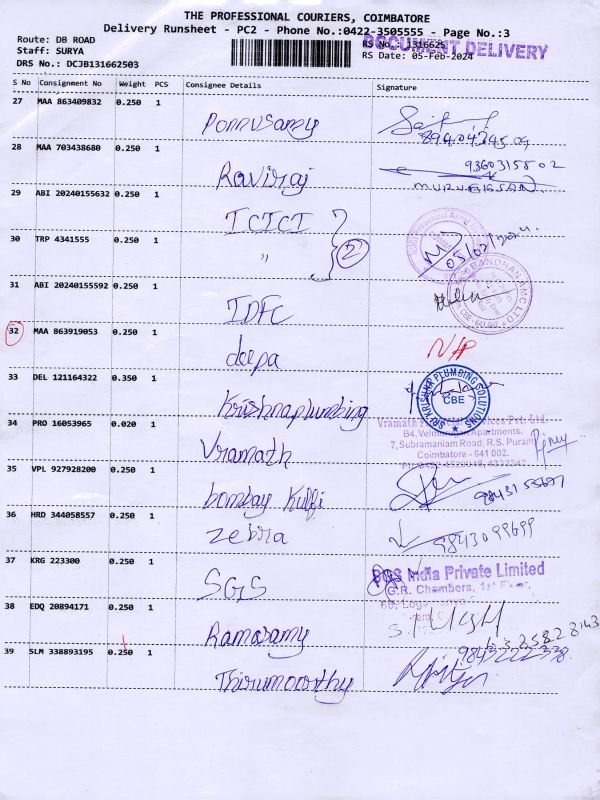 THE PROFESSIONAL COURIERS, COIMBATORE
Delivery Runsheet - PC2 - Phone No.:0422-3505555 - Page No.:3
Route: DB ROAD
RS No.: 1316625
DOCUMENT DELIVERY
Staff: SURYA
RS Date: 05-Feb-2024
DRS No.: DCJB131662503
S No Consignment No Weight PCS Consignee Details Signature
27 MAA 863409832 0.250 1
Ponnusamy
28 MAA 703438680 0.250 1
9360315502
Raviraj
MURUGESAN
29 ABI 20240155632 0.250 1
ICICI
30 TRP 4341555 0.250 1
" 2
05/02/2024
31 ABI 20240155592 0.250 1
IDFC
32 MAA 863919053 0.250 1
N/A
deepa
33 DEL 121164322 0.350 1
SRI KRISHNA PLUMBING SOLUTIONS
CBE
Krishnaplumbing
34 PRO 16053965 0.020 1
Vramath Financial Services Pvt. Ltd.
B4, Apartments,
7, Subramaniam Road, R.S. Puram
Coimbatore - 641 002.
Vramath
35 VPL 927928200 0.250 1
bombay Kulfi
9843155697
36 HRD 344058557 0.250 1
Zebra
9843099699
37 KRG 223300 0.250 1
SGS India Private Limited
G.R. Chambers, 1st Floor,
SGS
38 EDQ 20894171 0.250 1
Ramasamy
39 SLM 338893195 0.250 1
Thirumoorthy